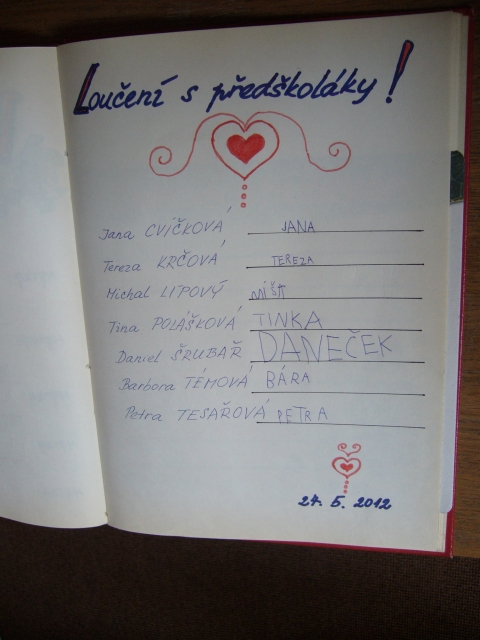 Loučení s předškoláky!
Jana CVÍČKOVÁ JANA
Tereza KRČOVÁ TEREZA
Michal LIPOVÝ MÍŠA
Tina POLÁŠKOVÁ TINKA
Daniel ŠRUBAŘ DANEČEK
Barbora TÉMOVÁ BÁRA
Petra TESAŘOVÁ PETRA
24. 5. 2012